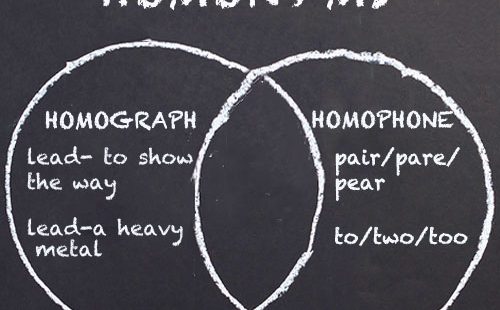 HOMONYMS
HOMOGRAPH
lead- to show
the way
lead-a heavy
metal
HOMOPHONE
pair/pare/
pear
to/two/too